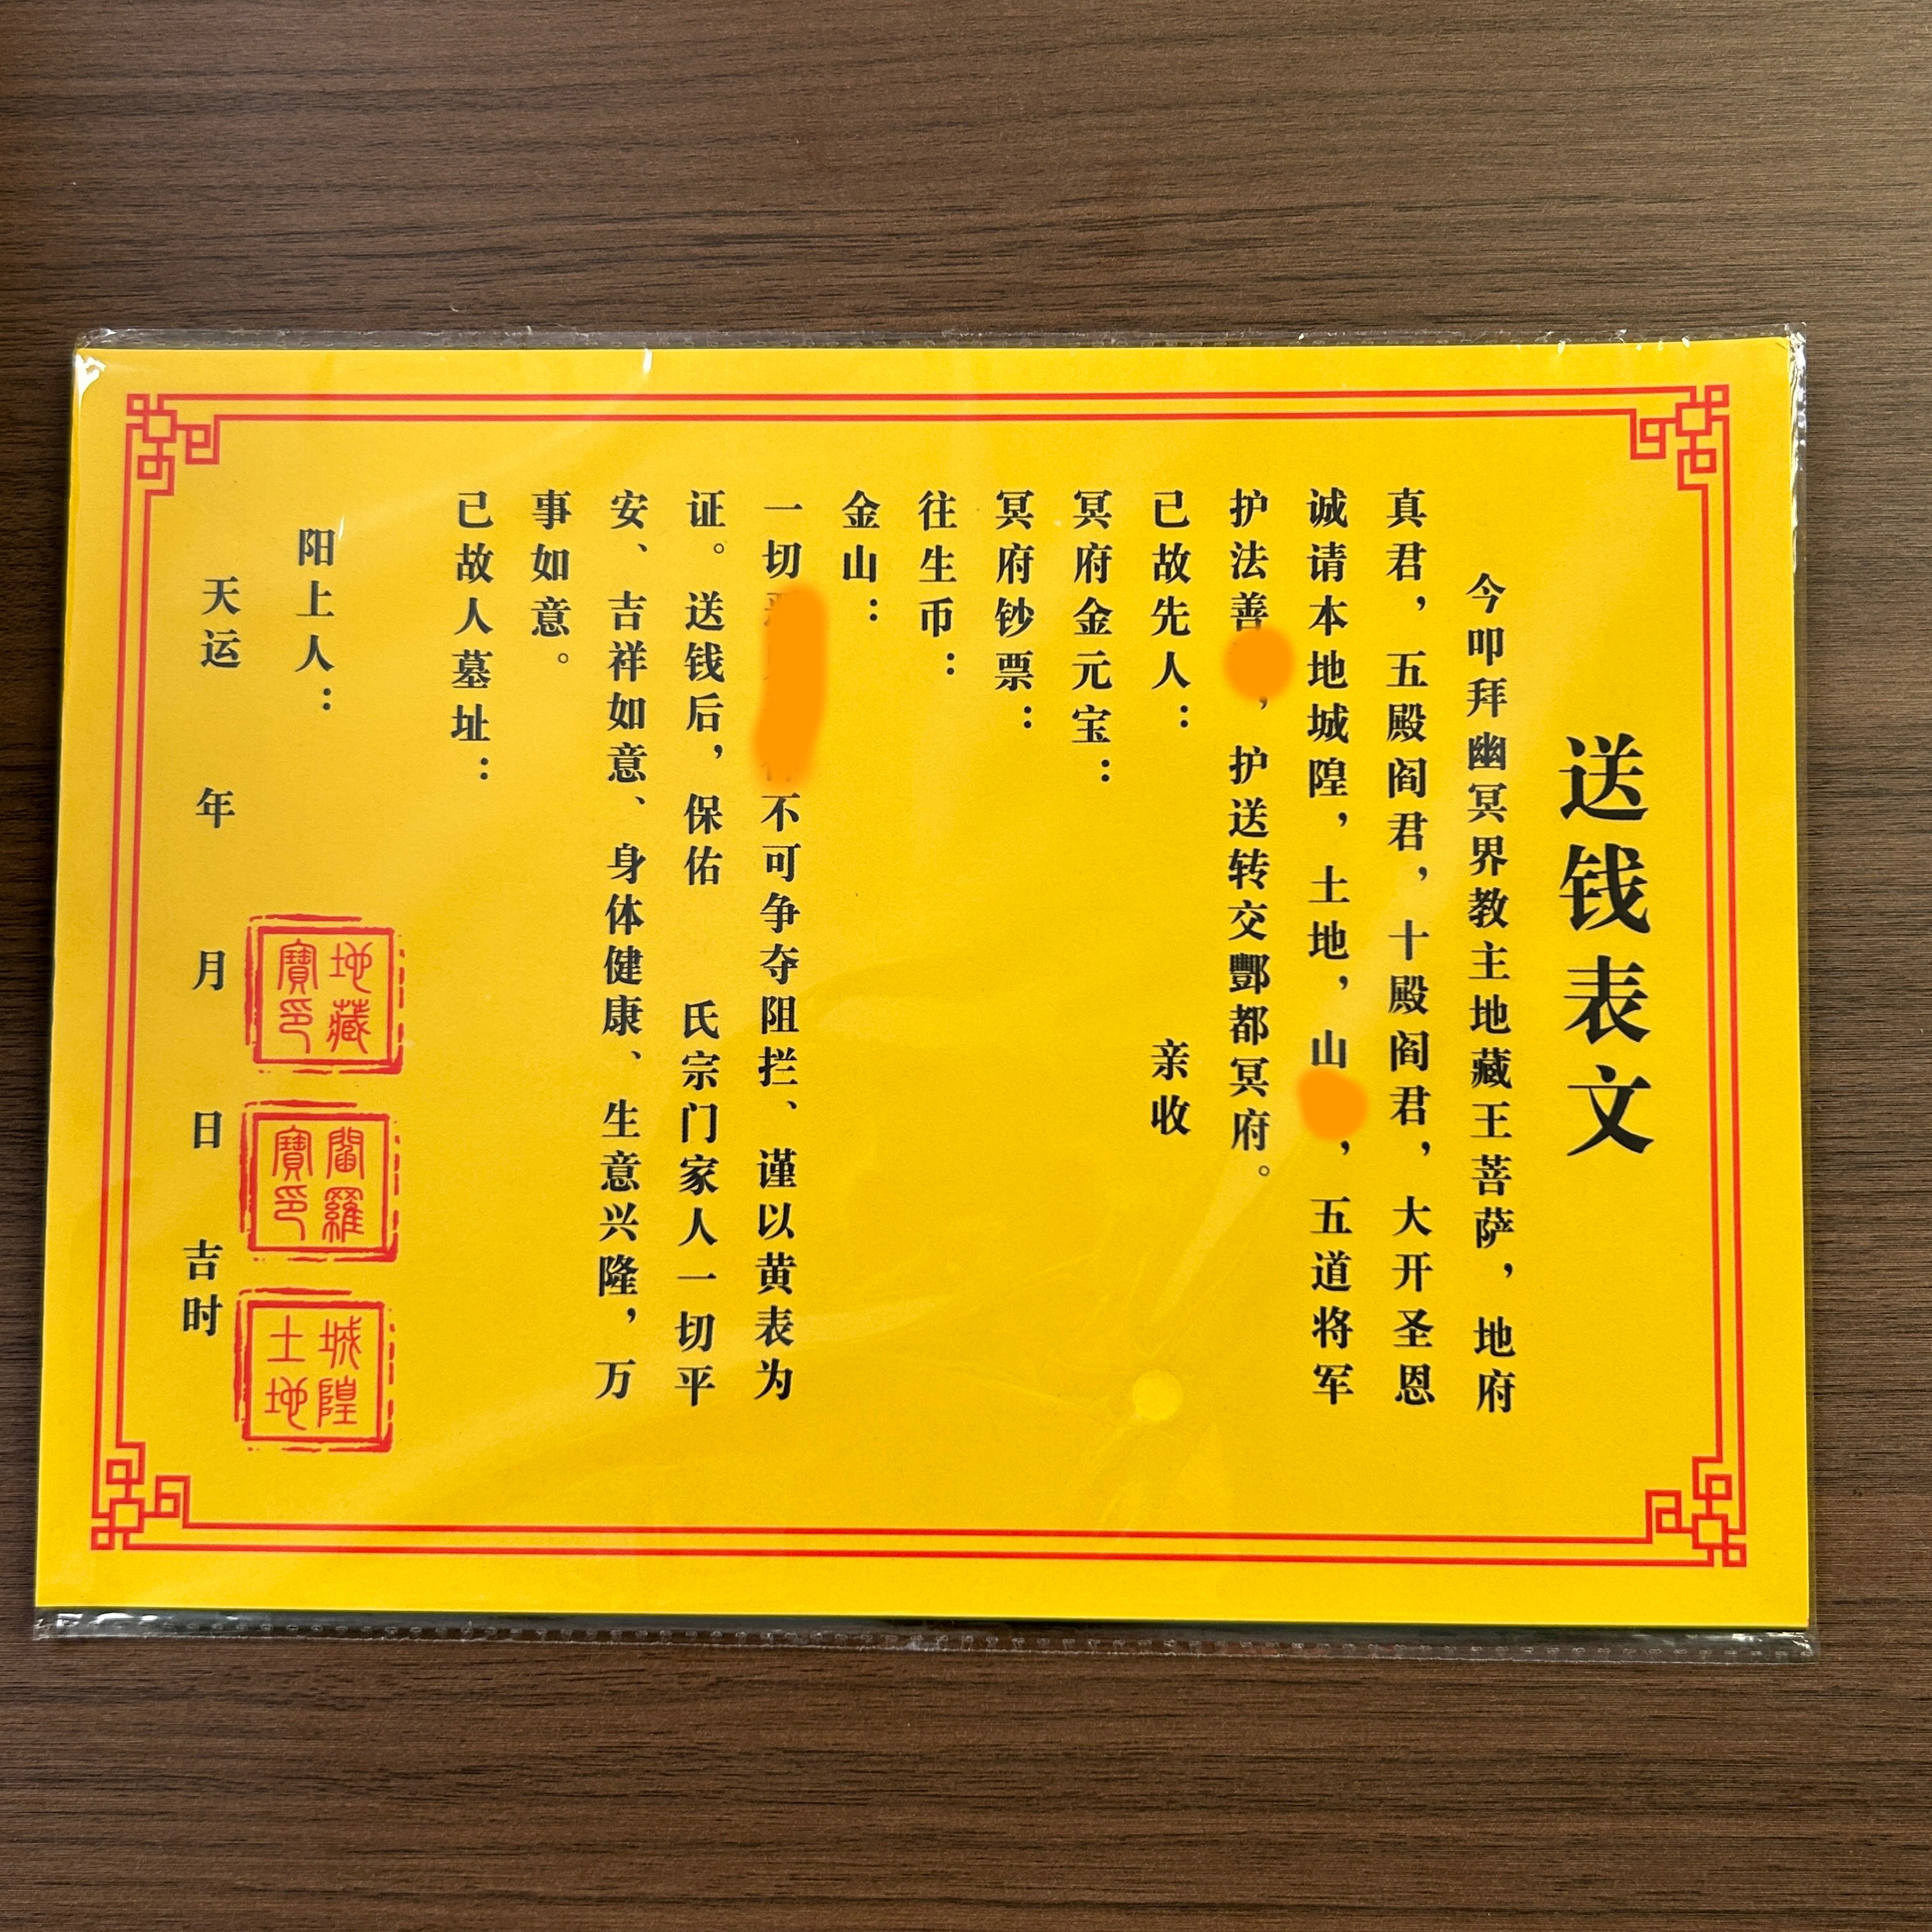 送钱表文
今叩拜幽冥界教主地藏王菩萨，地府
真君，五殿阎君，十殿阎君，大开圣恩
诚请本地城隍，土地，山，五道将军
护法善，护送转交酆都冥府。
已故先人： 亲收
冥府金元宝：
冥府钞票：
往生币：
金山：
一切不可争夺阻拦、谨以黄表为
证。送钱后，保佑 氏宗门家人一切平
安、吉祥如意、身体健康、生意兴隆，万
事如意。
已故人墓址：
阳上人：
天运 年 月 日 吉时
地藏寶印
閻羅寶印
城隍土地